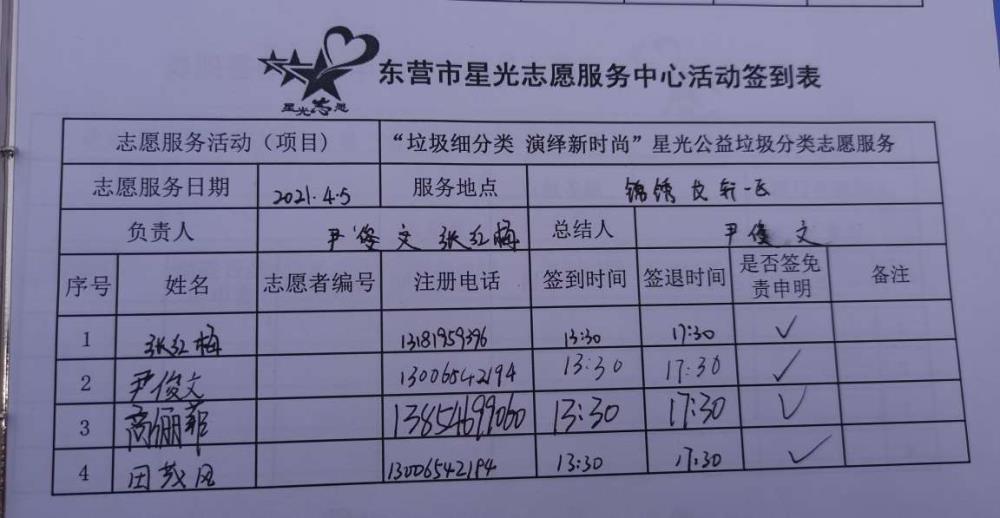 星光志愿
东营市星光志愿服务中心活动签到表
志愿服务活动（项目） “垃圾细分类 演绎新时尚”星光公益垃圾分类志愿服务
志愿服务日期 2021.4.5 服务地点 锦绣文轩一区
负责人 尹俊文 张红梅 总结人 尹俊文
序号 姓名 志愿者编号 注册电话 签到时间 签退时间 是否签免责申明 备注
1 张红梅 13181959396 13:30 17:30 ✓
2 尹俊文 13006542194 13:30 17:30 ✓
3 商俪菲 13854699060 13:30 17:30 ✓
4 田茂风 13006542194 13:30 17:30 ✓